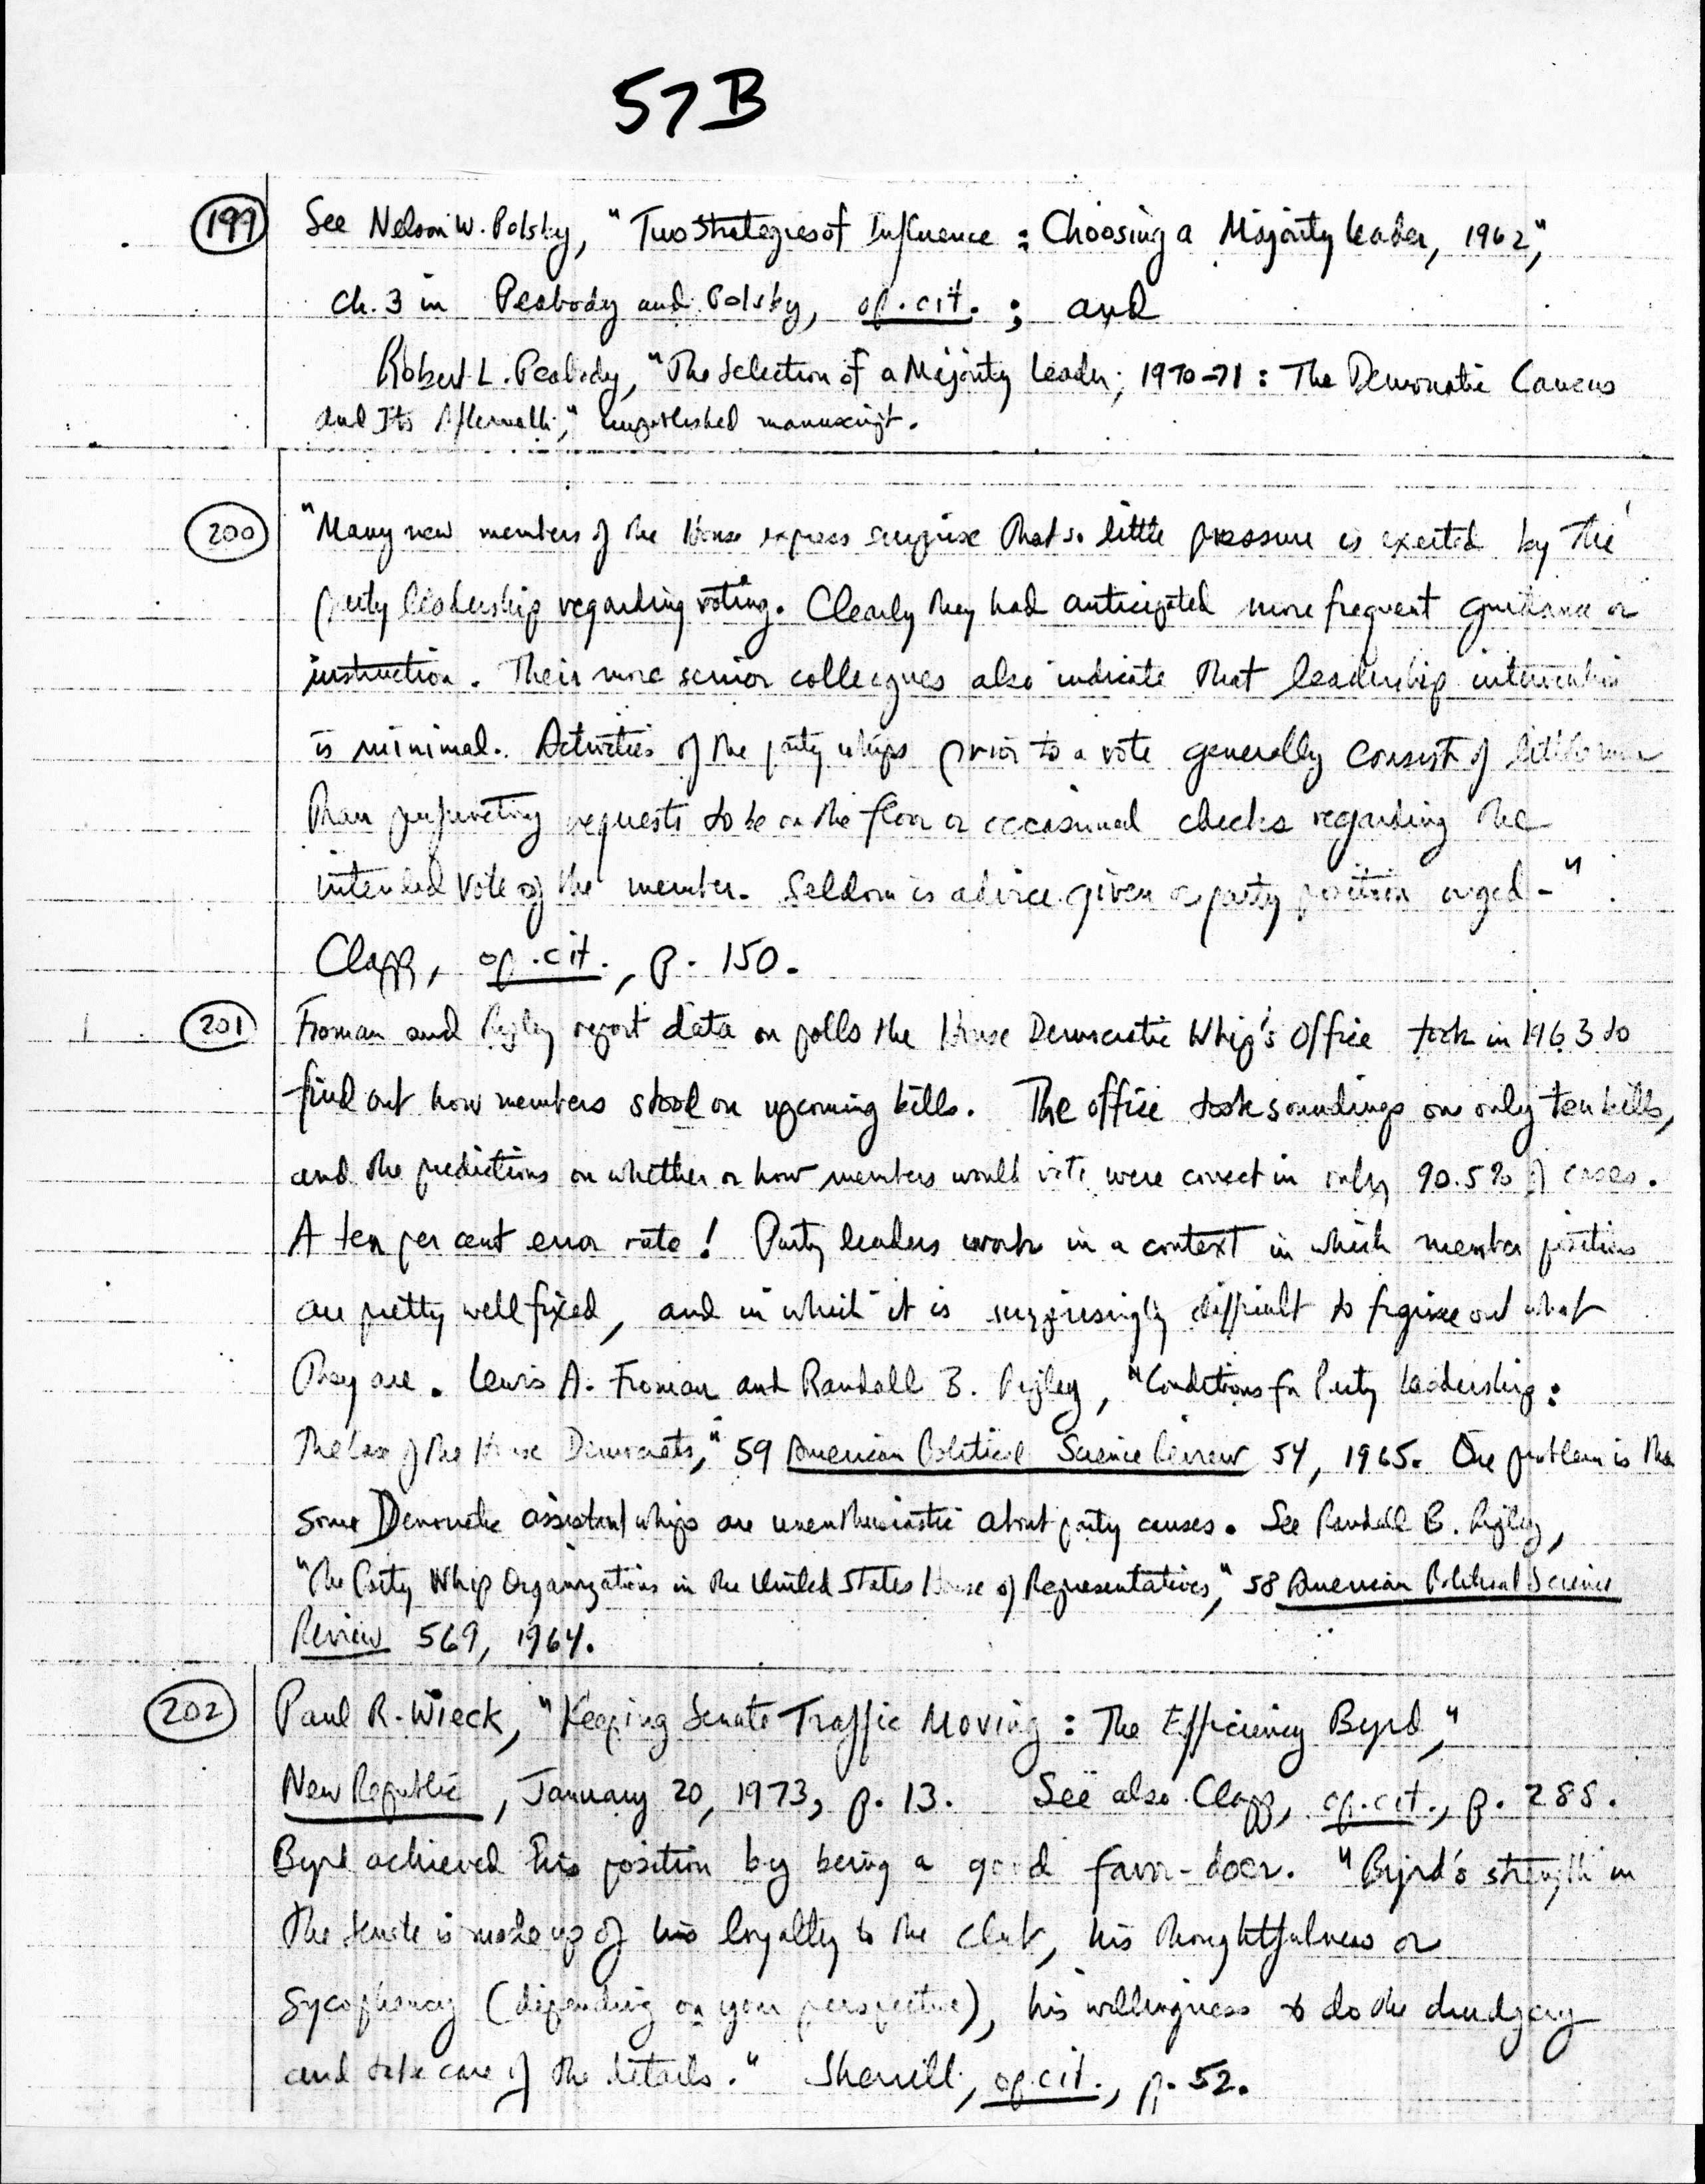 57B
199 See Nelson W. Polsby, "Two Strategies of Influence: Choosing a Majority Leader, 1962,"
ch. 3 in Peabody and Polsby, op. cit.; and
Robert L. Peabody, "The Selection of a Majority Leader, 1970-71: The Democratic Caucus
and Its Aftermath," unpublished manuscript.
200 "Many new members of the House express surprise that so little pressure is exerted by the
party leadership regarding voting. Clearly they had anticipated more frequent guidance or
instruction. Their more senior colleagues also indicate that leadership intervention
is minimal. Activities of the party whips prior to a vote generally consist of little more
than perfunctory requests to be on the floor or occasional checks regarding the
intended vote of the member. Seldom is advice given or party position urged."
Clapp, op. cit., p. 150.
201 Froman and Ripley report data on polls the House Democratic Whip's Office took in 1963 to
find out how members stood on upcoming bills. The office took soundings on only ten bills,
and the predictions on whether or how members would vote were correct in only 90.5% of cases.
A ten per cent error rate! Party leaders work in a context in which member positions
are pretty well fixed, and in which it is surprisingly difficult to figure out what
they are. Lewis A. Froman and Randall B. Ripley, "Conditions for Party Leadership:
The Case of the House Democrats," 59 American Political Science Review 54, 1965. One problem is tha
some Democratic assistant whips are unenthusiastic about party causes. See Randall B. Ripley,
"The Party Whip Organizations in the United States House of Representatives," 58 American Political Science
Review 569, 1964.
202 Paul R. Wieck, "Keeping Senate Traffic Moving: The Efficiency Byrd,"
New Republic, January 20, 1973, p. 13. See also Clapp, op. cit., p. 288.
Byrd achieved his position by being a good favor-doer. "Byrd's strength in
the Senate is made up of his loyalty to the club, his thoughtfulness or
sycophancy (depending on your perspective), his willingness to do the drudgery
and take care of the details." Sherrill, op. cit., p. 52.